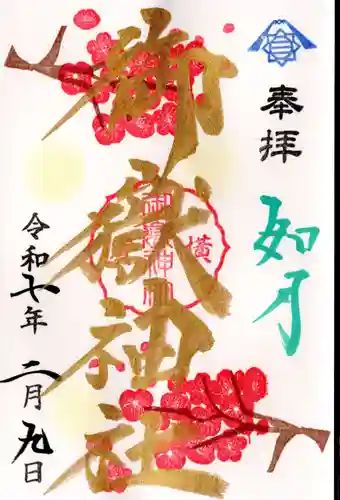 奉拝
如月
御嶽神社
横
御嶽神社
令和七年
二月九日